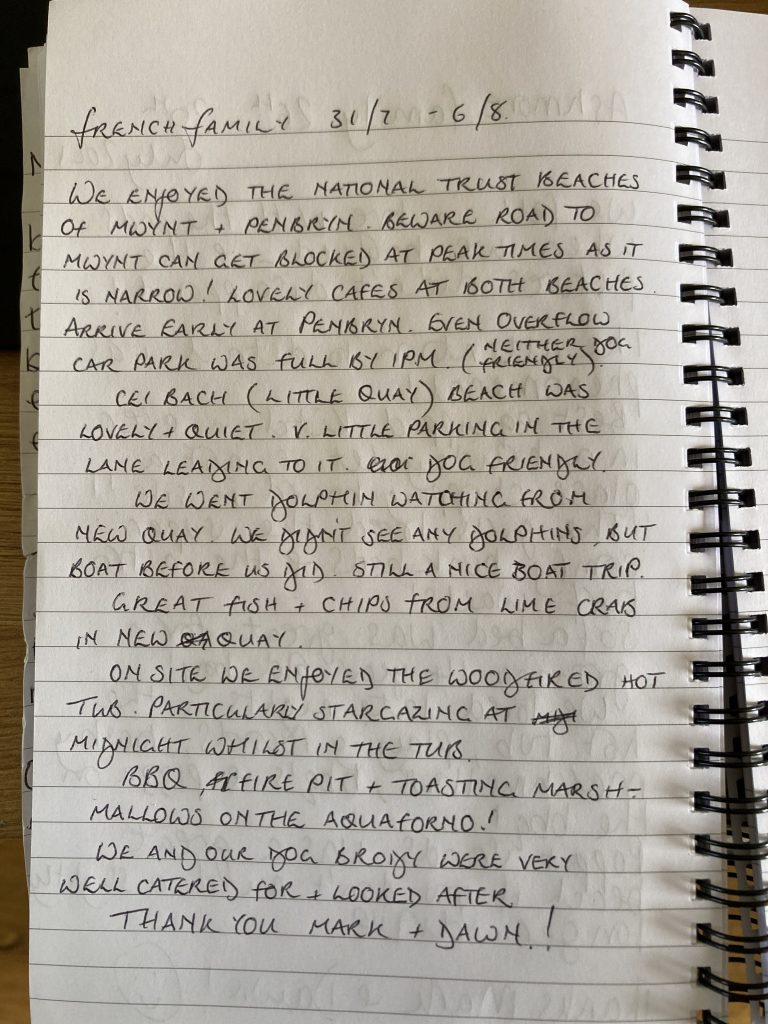 FRENCH FAMILY 31/7 - 6/8.
WE ENJOYED THE NATIONAL TRUST BEACHES
OF MWYNT + PENBRYN. BEWARE ROAD TO
MWYNT CAN GET BLOCKED AT PEAK TIMES AS IT
IS NARROW! LOVELY CAFES AT BOTH BEACHES.
ARRIVE EARLY AT PENBRYN. EVEN OVERFLOW
CAR PARK WAS FULL BY 1PM. (NEITHER DOG FRIENDLY).
CEI BACH (LITTLE QUAY) BEACH WAS
LOVELY + QUIET. V. LITTLE PARKING IN THE
LANE LEADING TO IT. DOG FRIENDLY.
WE WENT DOLPHIN WATCHING FROM
NEW QUAY. WE DIDN'T SEE ANY DOLPHINS, BUT
BOAT BEFORE US DID. STILL A NICE BOAT TRIP.
GREAT FISH + CHIPS FROM LIME CRAB
IN NEW QUAY.
ON SITE WE ENJOYED THE WOODFIRED HOT
TUB. PARTICULARLY STARGAZING AT
MIDNIGHT WHILST IN THE TUB.
BBQ, FIRE PIT + TOASTING MARSH-
MALLOWS ON THE AQUAFORNO!
WE AND OUR DOG BRODY WERE VERY
WELL CATERED FOR + LOOKED AFTER
THANK YOU MARK + DAWN!